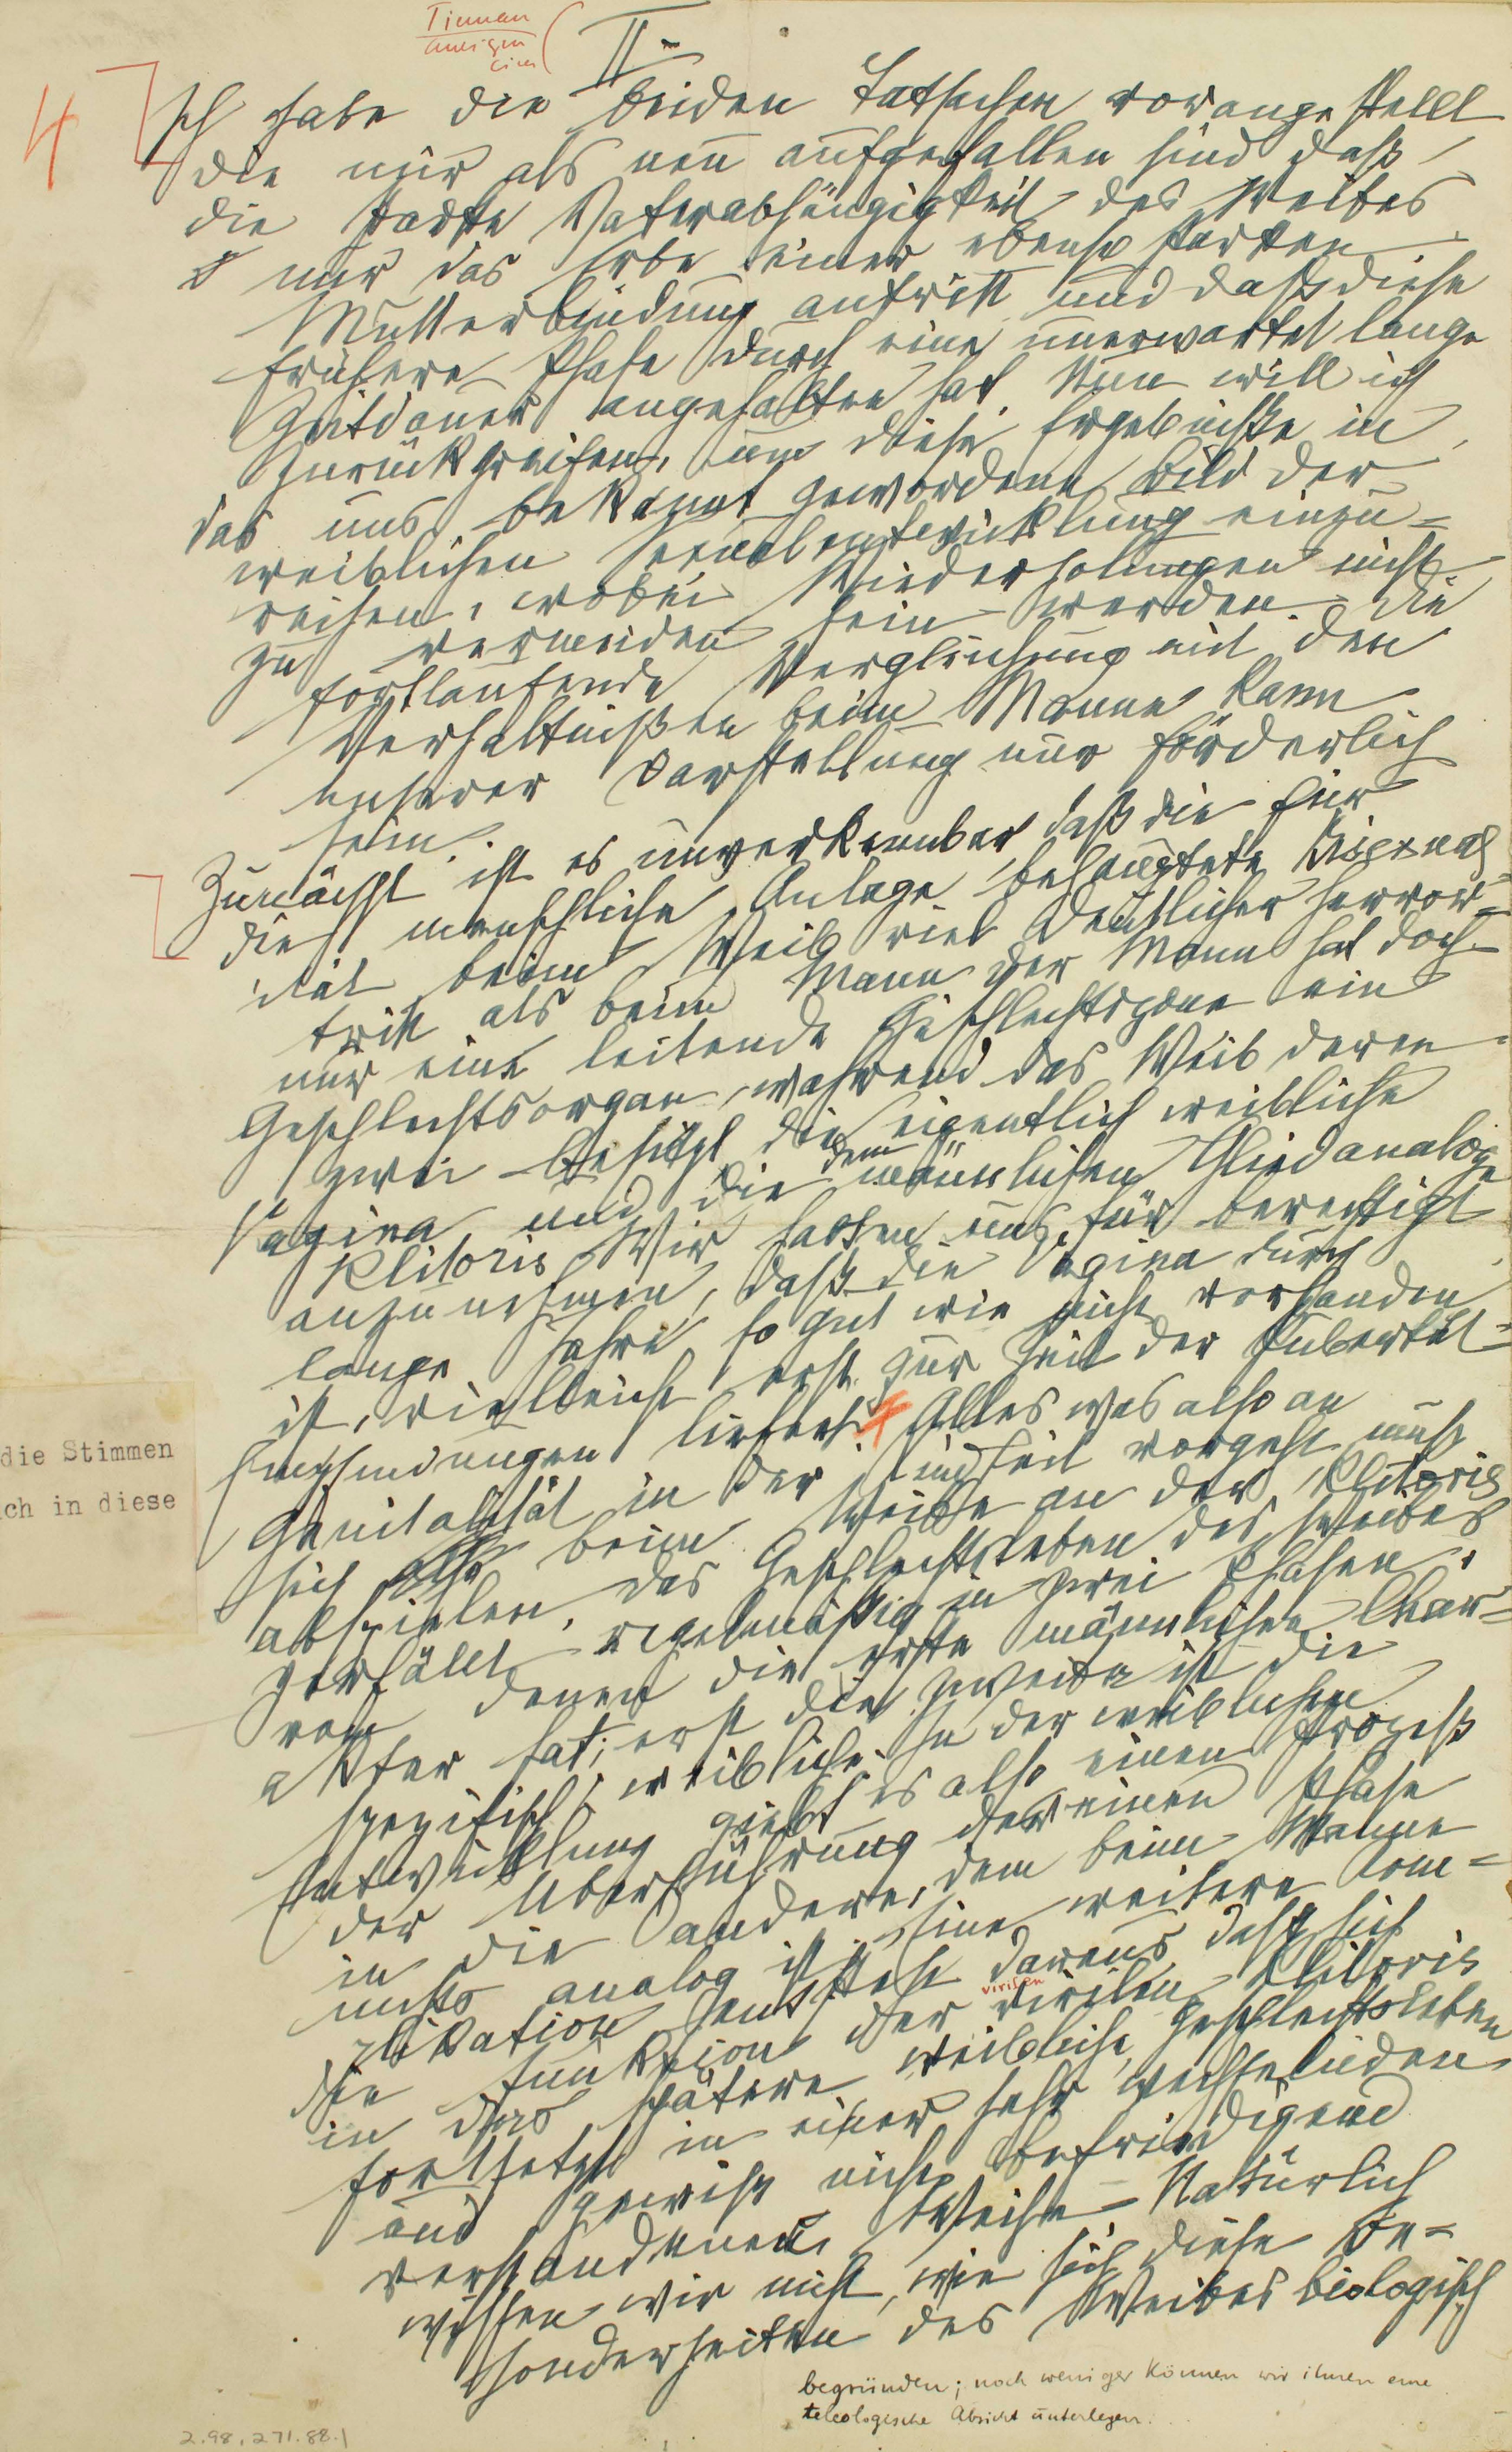 II.
4
Ich habe die beiden Tatsachen vorangestellt
die mir als neu aufgefallen sind daß
die starke Vaterabhängigkeit des Weibes
nur das Erbe einer ebenso starken
Mutterbindung antritt und daß diese
frühere Phase durch eine unerwartet lange
Zeitdauer angehalten hat. Nun will ich
zurückgreifen, um diese Ergebniße in
das uns bekannt gewordene Bild der
weiblichen Sexualentwicklung einzu=
reihen, wobei Wiederholungen nicht
zu vermeiden sein werden. Die
fortlaufende Vergleichung mit den
Verhältnißen beim Manne kann
unserer Darstellung nur förderlich
sein.
Zunächst ist es unverkennbar daß die für
die menschliche Anlage behauptete Bisexual=
ität beim Weib viel deutlicher hervor=
tritt als beim Mann der Mann hat doch
nur eine leitende Geschlechtszone ein
Geschlechtsorgan, während das Weib deren
zwei besitzt die eigentlich weibliche
Vagina und die dem männlichen Glied analoge
Klitoris Wir halten uns für berechtigt
anzunehmen, daß die Vagina durch
lange Jahre so gut wie nicht vorhanden
ist, vielleicht erst zur Zeit der Pubertät=
Empfindungen liefert. Alles was also an
Genitalität in der Kindheit vorgeht muß
sich beim Weibe an der Klitoris
abspielen. Das Geschlechtsleben des Weibes
zerfällt regelmäßig in zwei Phasen,
von denen die erste männlichen Char=
akter hat; erst die zweite ist die
spezifisch weibliche. In der weiblichen
Entwicklung giebt es also einen Prozeß
der Überführung der einen Phase
in die andere, dem beim Manne
nichts analog ist. Eine weitere Com=
plikation entsteht daraus daß sich
virilen
die Funktion der virilen Klitoris
in das spätere weibliche Geschlechtsleben
fortsetzt in einer sehr wechselnden
und gewiß nicht befriedigend
verstandenen Weise. Natürlich
wissen wir nicht, wie sich diese Be=
sonderheiten des Weibes biologisch
begründen; noch weniger können wir ihnen eine
teleologische Absicht unterlegen.
die Stimmen
ch in diese
2.98.271.88.1